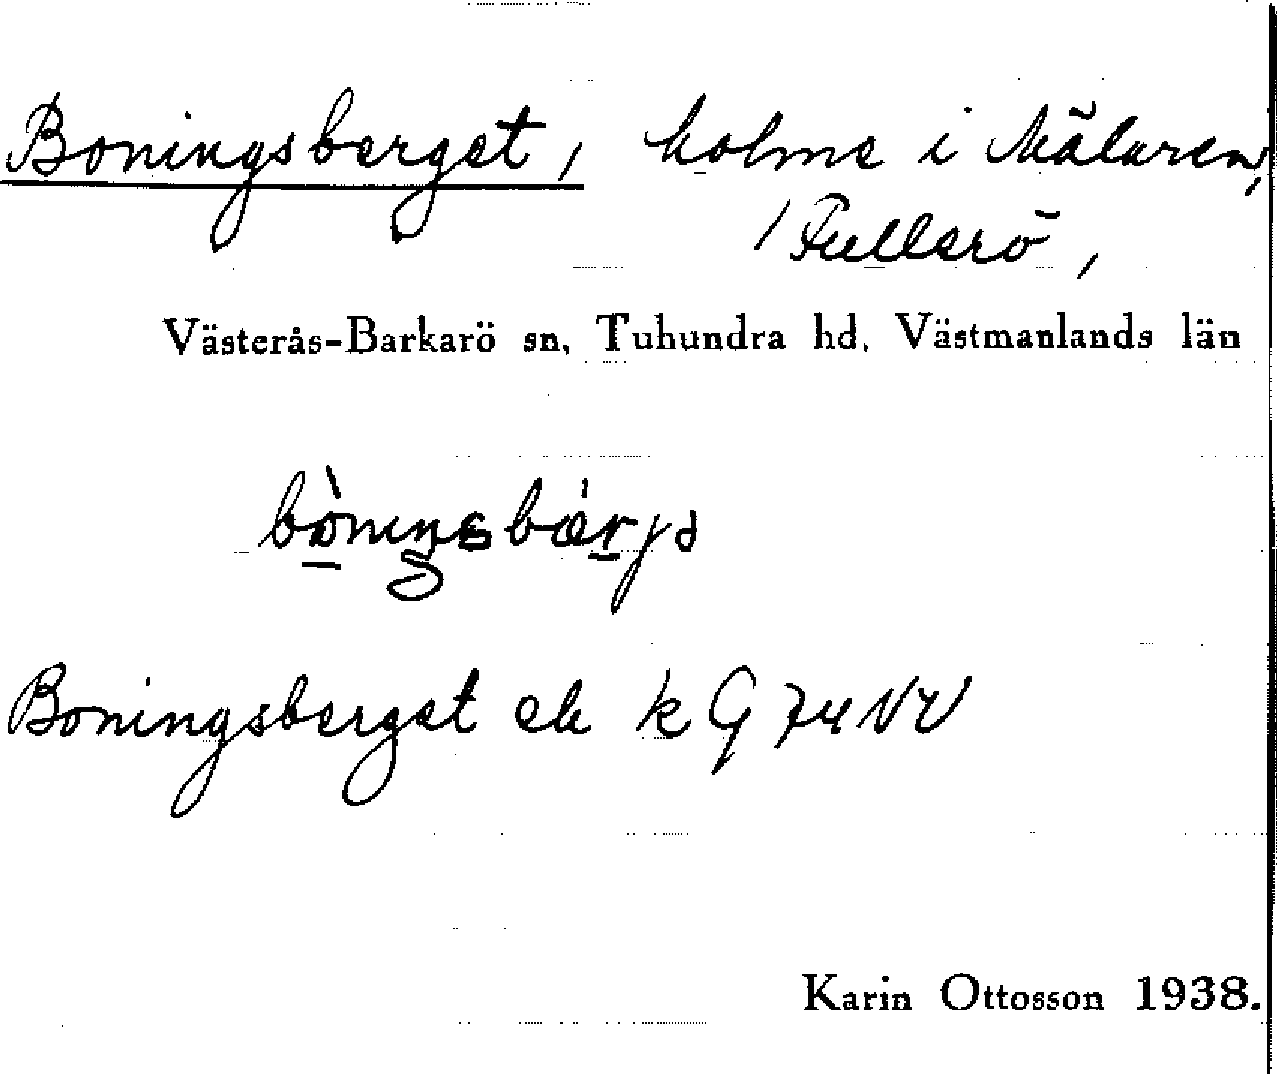 Boningsberget, holme i Mälaren,
/ Fullerö,
Västerås-Barkarö sn, Tuhundra hd, Västmanlands län
Boningsberget ek k G 74 NV
Karin Ottosson 1938.